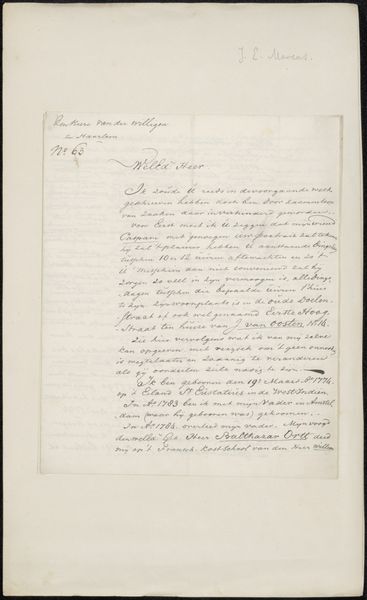 J. E. Marcus.
van der Willigen
te Haarlem
No 63
WelEd Heer
Ik zoude U reeds in de voorgaande week
geschreven hebben doch ben door
van zaaken daar in verhinderd geworden.
Voor Eerst moet ik U zeggen dat mijn vriend
met genoegen een portrait zal teken
hij zal 't plaisier hebben U aanstaande
tusschen 10 en 12 uuren afte wachten en zo 't
U misschien dan niet convenieerd zal hij
zorgen zo veel in zijn vermogen is, alle
dagen tusschen die bepaalde uuren t'huis
te zijn zijn woonplaats is in de oude Doelen
Straat of ook wel genaamd Eerste Hoog
Straat ten huize van J van Oosten No 14.
Zie hier vervolgens wat ik van mij zelve
kan opgeeven met verzoek om 't geen
is wegtelaaten en zodanig te veranderen
als gij oordeelen zult nodig te zijn
Ik ben gebooren den 19e Maart Ao 1774
op 't Eiland St Eustatius in de West Indien.
In Ao 1783 ben ik met mijn Vader in Amstel
dam (waar hij gebooren was) gekoomen.
In Ao 1784. overleed mijn vader. Mijn voog
den welEd Geb. Heer Balthazar Ortt deed
mij op 't Fransch Kostschool van den Heer Willem